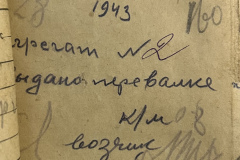 1943
грегат N 2
ыдано перевалке
к/м 08
возчик